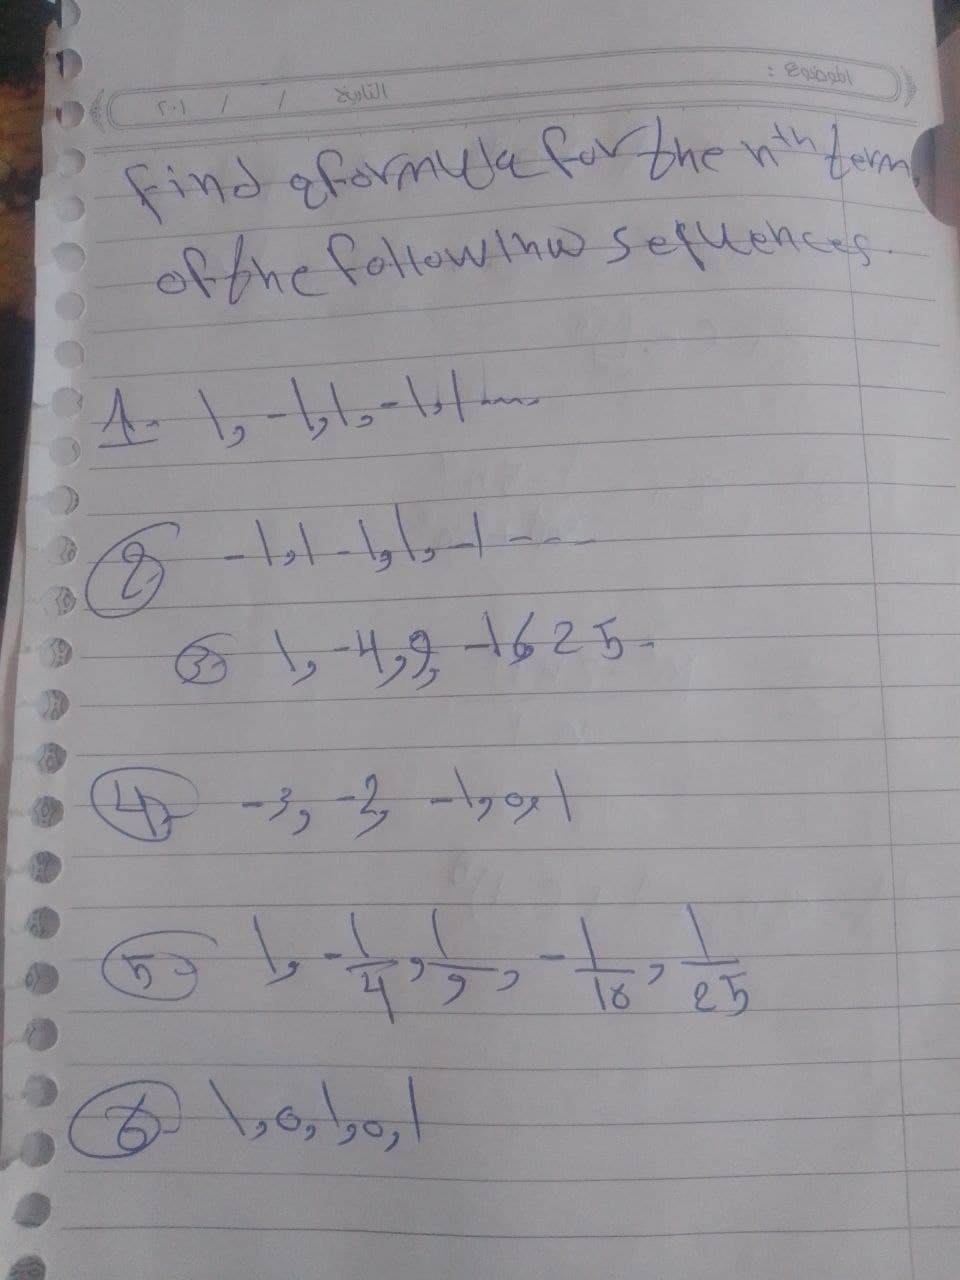 الموضوع :
التاريخ / / ٢٠١
Find a formula for the nth term
of the followinw sequences.
1- 1, -1, 1, -1, 1 ......
2, -1, 1 -1, 1, -1 ---
3) 1, -4, 9, -16 25 -
4, -3, -2, -1, 0, 1
5, 1, -1/4, 1/9, -1/16, 1/25
6 1, 0, 1, 0, 1